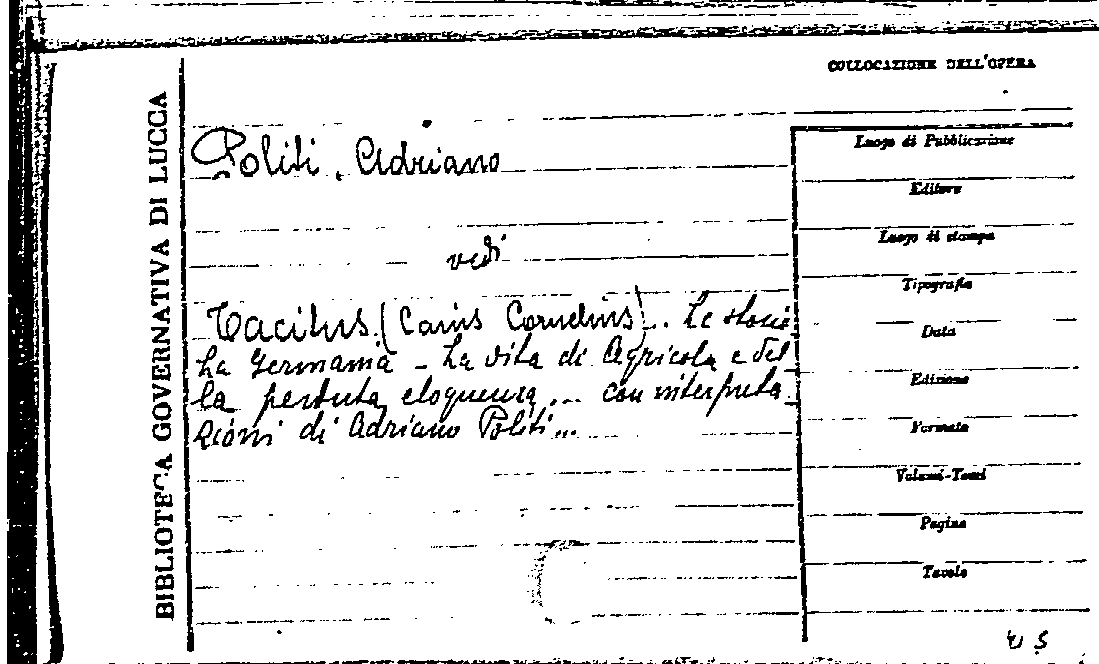 COLLOCAZIONE DELL'OPERA
BIBLIOTECA GOVERNATIVA DI LUCCA
Politi, Adriano
vedi
Tacitus (Caius Cornelius). Le storie
La Germania - La vita di Agricola e del
la perduta eloquenza... con interpreta
zioni di Adriano Politi...
Luogo di Pubblicazione
Editore
Luogo di stampa
Tipografia
Data
Edizione
Formato
Volumi-Tomi
Pagine
Tavole